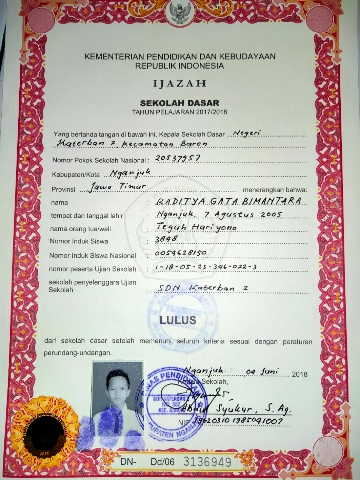 KEMENTERIAN PENDIDIKAN DAN KEBUDAYAAN
REPUBLIK INDONESIA
IJAZAH
SEKOLAH DASAR
TAHUN PELAJARAN 2017/2018
Yang bertanda tangan di bawah ini, Kepala Sekolah Dasar Negeri
Katerban 2 Kecamatan Baron
Nomor Pokok Sekolah Nasional : 20537957
Kabupaten/Kota Nganjuk
Provinsi Jawa Timur menerangkan bahwa:
nama RADITYA GATA BIMANTARA
tempat dan tanggal lahir Nganjuk, 7 Agustus 2005
nama orang tua/wali Teguh Hariyono
Nomor Induk Siswa 3898
Nomor Induk Siswa Nasional 0059628150
nomor peserta Ujian Sekolah 1-18-05-25-346-022-3
sekolah penyelenggara Ujian Sekolah SDN Katerban 2
LULUS
dari sekolah dasar setelah memenuhi seluruh kriteria sesuai dengan peraturan
perundang-undangan.
Nganjuk, Juni 2018
Kepala Sekolah,
Syukur, S. Ag.
NIP
DN- Dd/06 3136949